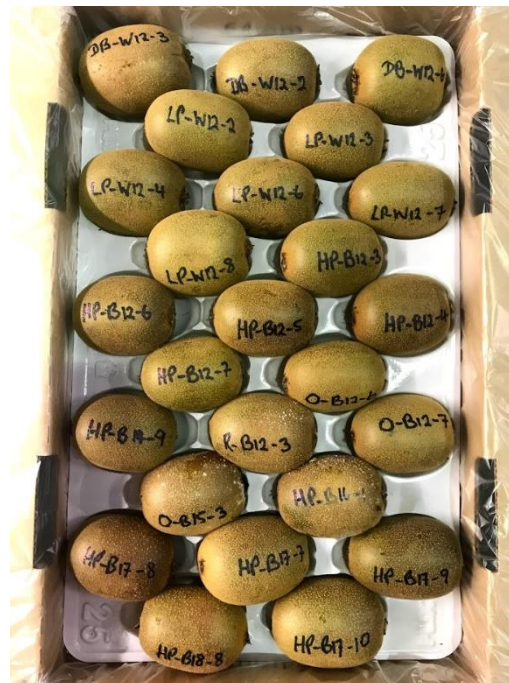 DB-W12-3
DB-W12-2
DB-W12-
LP-W12-2
LP-W12-3
LP-W12-4
LP-W12-6
LP-W12-7
LP-W12-8
HP-B12-3
HP-B12-6
HP-B12-5
HP-B12-4
HP-B12-7
O-B12-
HP-B14-9
R-B12-3
O-B12-7
O-B15-3
HP-B16-
HP-B17-8
HP-B17-7
HP-B17-9
HP-B18-8
HP-B17-10
25